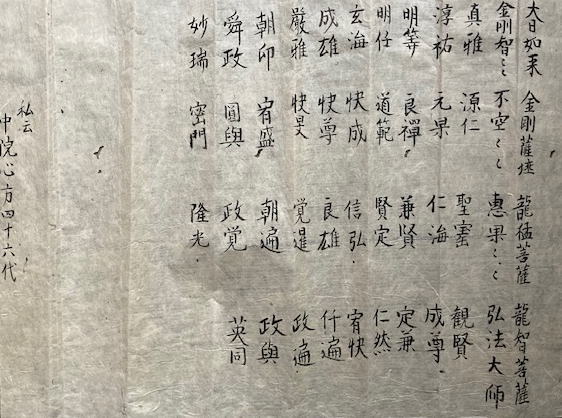 大日如来 金剛薩埵 龍猛菩薩 龍智菩薩
金剛智〻〻 不空〻〻 惠果〻〻 弘法大師
真雅 源仁 聖寳 觀賢
淳祐 元杲 仁海 成尊
明筭 良禪 兼賢 定兼
明任 道範 賢定 仁然
玄海 快成 信弘 宥快
成雄 快尊 良雄 仟遍
嚴雅 快旻 覚暹 政遍
朝印 宥盛 朝遍 政與
舜政 圓與 政覚 英同
妙瑞 密門 隆光
私云
中院心方四十六代